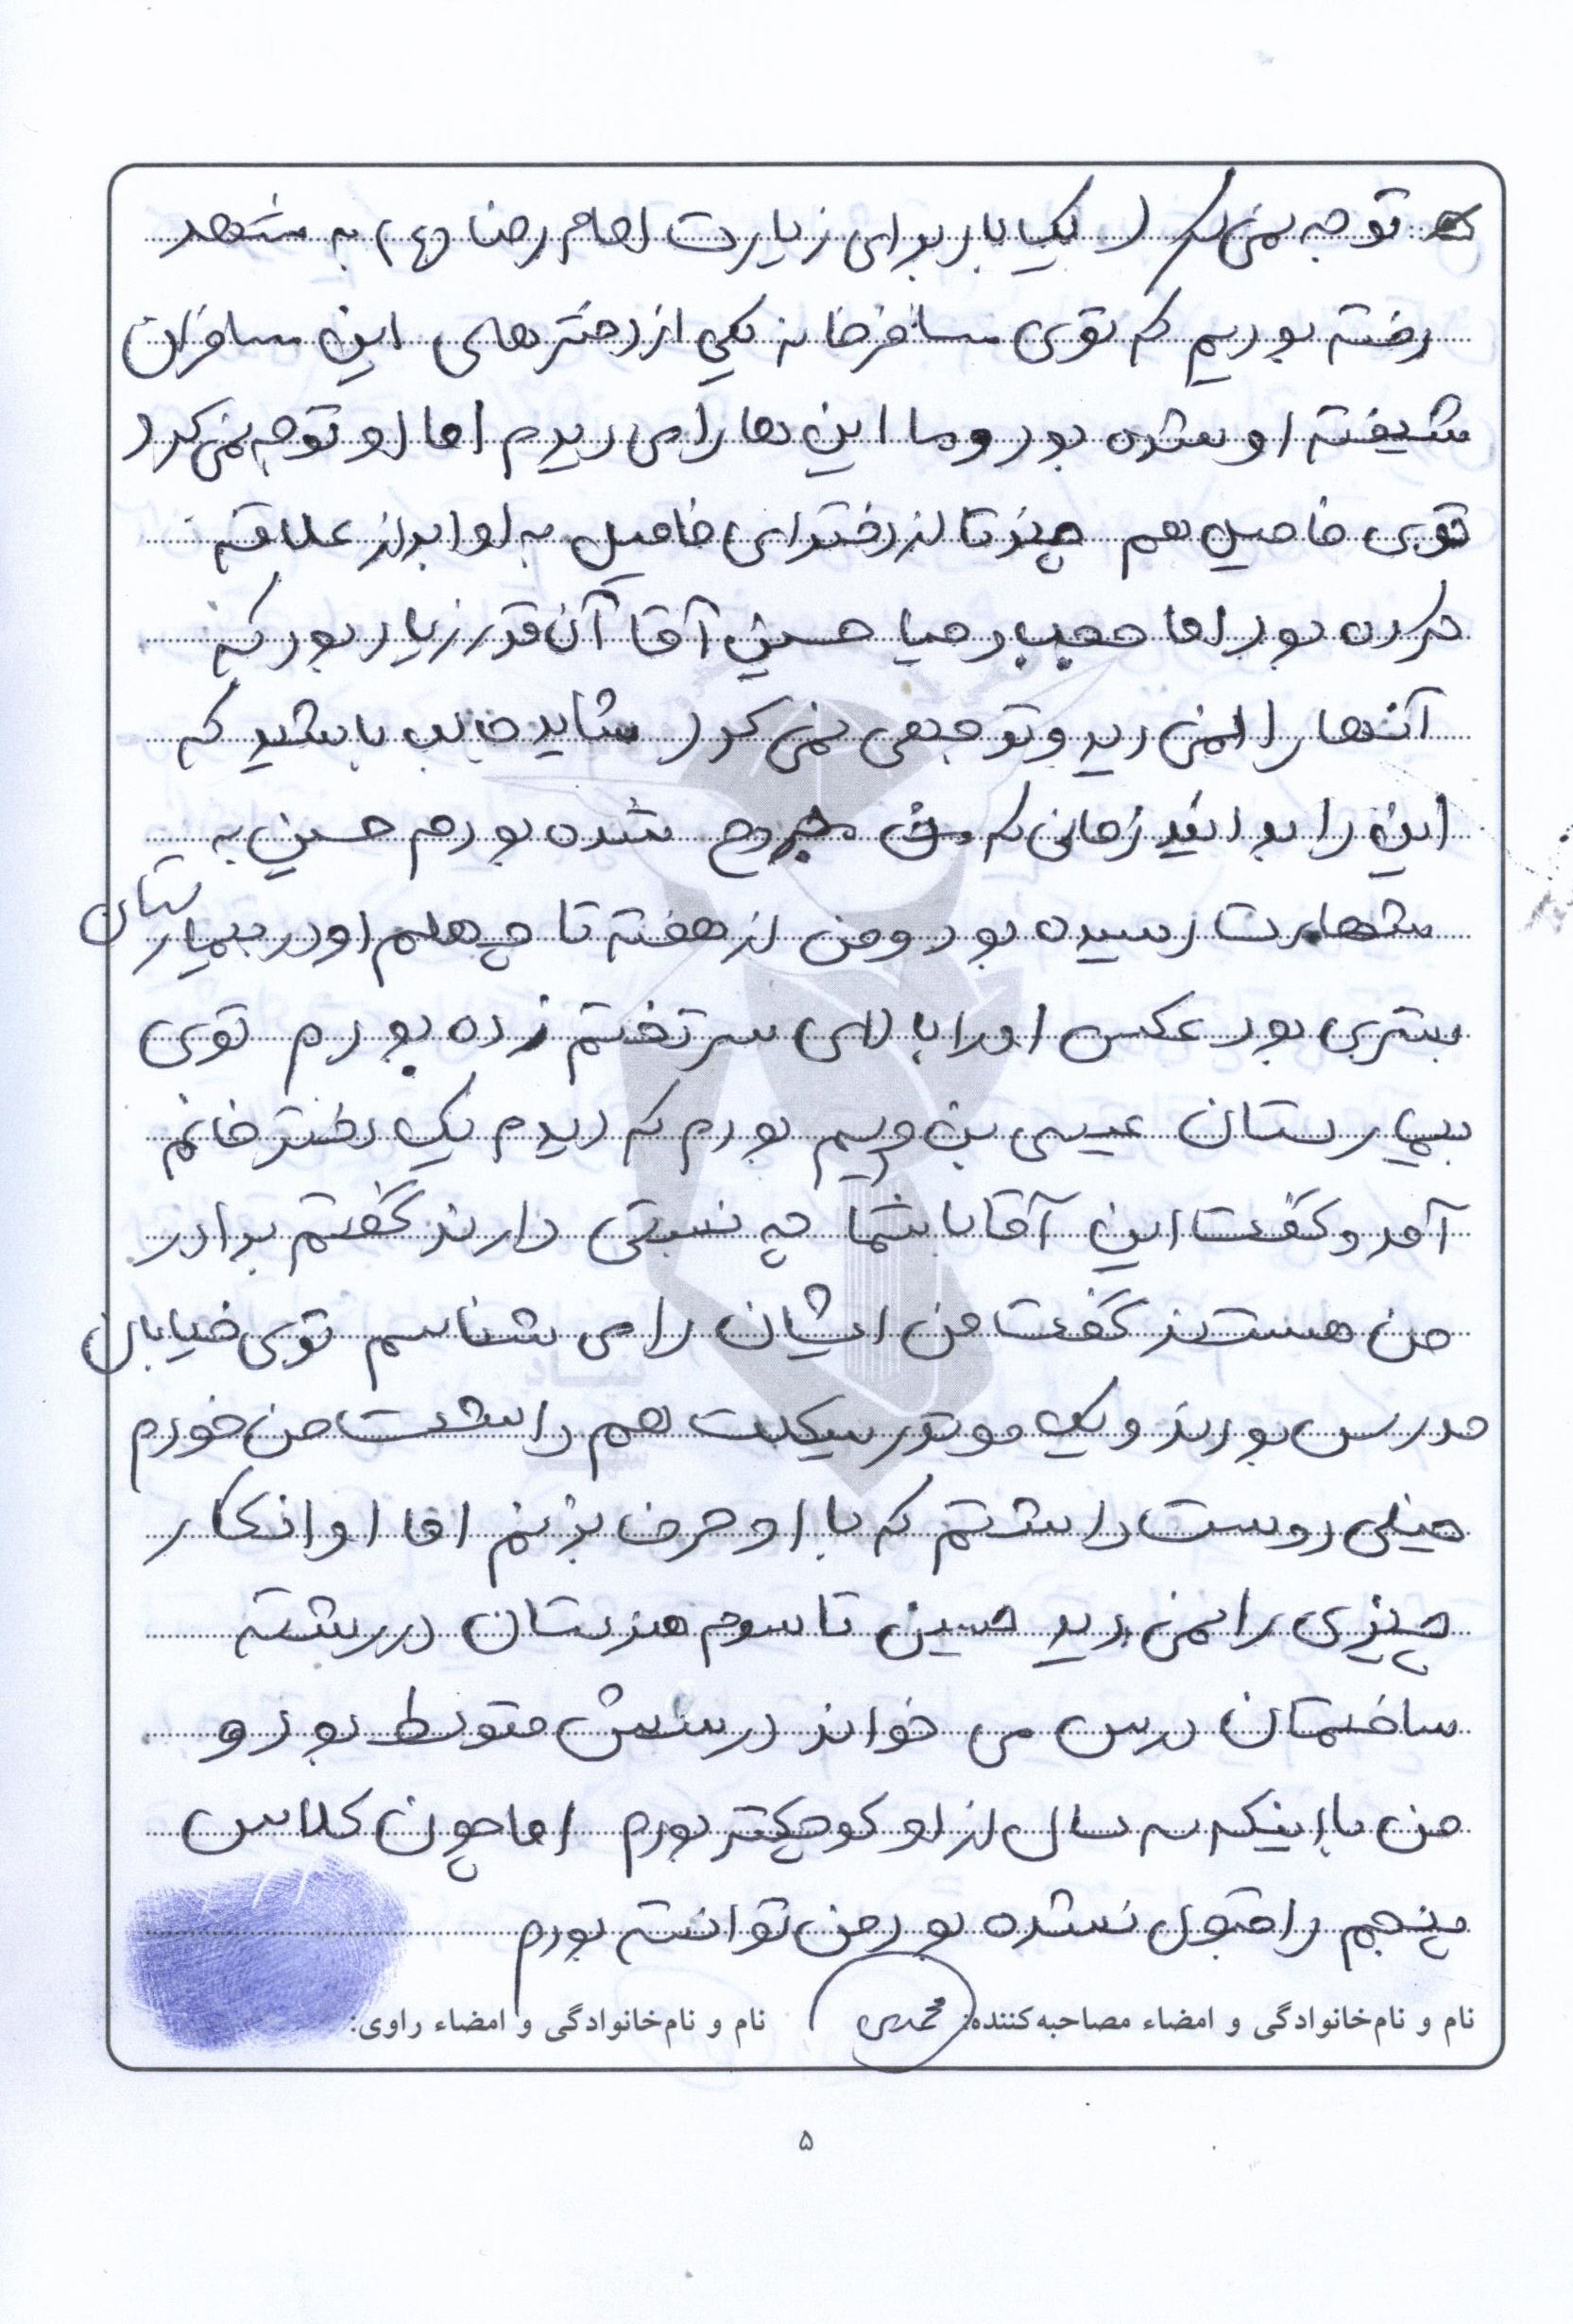 توجه نمی کرد یکبار برای زیارت امام رضا (ع) به مشهد
رفته بودیم که توی مسافرخانه یکی از دخترهای این مسافران
شیفته او شده بود و ما این ها را می دیدم اما او توجه نمی کرد
توی فامیل هم چند تا از دخترای فامیل به او ابراز علاقه
کرده بود اما حجب و حیا حسین آقا آن قدر زیاد بود که
آنها را نمی دید و توجهی نمی کرد شاید جالب باشید که
این را بدانید زمانی که من مجروح شده بودم حسین به
شهادت رسیده بود و من از هفته تا چهلم او در بیمارستان
بستری بود عکس او را بالای سر تختم زده بودم توی
بیمارستان عیسی بن مریم بودم که دیدم یک دختر خانم
آمد و گفت این آقا با شما چه نسبتی دارند گفتم برادر
من هستند گفت من ایشان را می شناسم توی خیابان
مدرس بودند و یک موتورسیکلت هم داشت من خودم
خیلی دوست داشتم که با او حرف بزنم اما او انگار
چیزی را نمی دید حسین تا سوم هنرستان در رشته
ساختمان درس می خواند درسش متوسط بود و
من با اینکه سه سال از او کوچکتر بودم اما چون کلاس
پنجم را قبول نشده بود من توانسته بودم
نام و نام‌خانوادگی و امضاء مصاحبه‌کننده: محمدی نام و نام‌خانوادگی و امضاء راوی:
۵